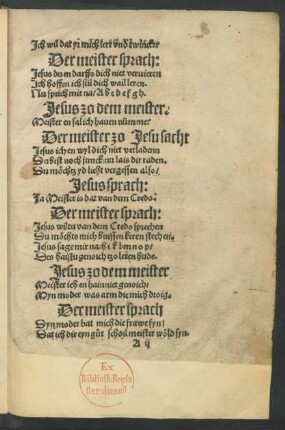 Ich wil dat yr mich lert vnd
Der meister sprach:
Jesus du en darffs dich niet veruieren
Ich hoffen ich sül dich wail leren.
Nu sprich mir na/ A b c d e f g h.
Jesus zo dem meister.
Meister en sal ich hauen nümme
Der meister zo Jesu sacht
Jesus ich en wyl dich niet verladenn
Du bist noch junck nu lais dir raden.
Du möchtz yd licht vergessen also/
Jesus sprach:
Ja Meister is dat van dem Credo:
Der meister sprach:
Jesus wiltu van dem Credo sprechen
Du möchts mich
Jesus sage mir na/ h i k l m n o p/
Des haistu genoich zo leren hude.
Jesus zo dem meister
Meister ich en hain niet genoich/
Myn moder was arm die mich droig.
Der meister sprach
Dyn moder bat mich die frawe fyn/
Dat ich dir eyn güt scholmeister wöld syn.
A ij
Ex
Biblioth. Regia
Berolinens.